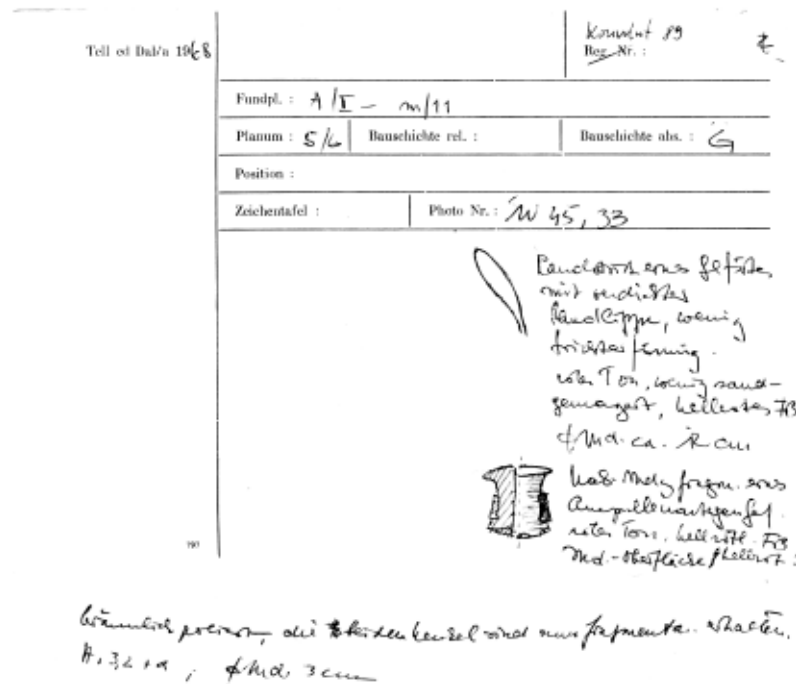 Tell ed Dab'a 1968
Konvolut 89
Reg. Nr. :
Fundpl. : A/I - m/11
Planum : 5/6 Bauschichte rel. : Bauschichte abs. : G
Position :
Zeichentafel : Photo Nr. : W 45, 33
Randstück eines Gefäßes
mit verdickter
Randlippe, wenig
roter Ton, wenig sand-
gemagert, hellrotes FB
Md. ca. cm
Hals Mdg fragm. eines
Ampullenartigen Gef.
roter Ton. hellrötl. FB
Md.-Oberfläche hellrot
bräunlich poliert, die beiden Henkel sind nur fragmentar. erhalten.
Md. 3 cm